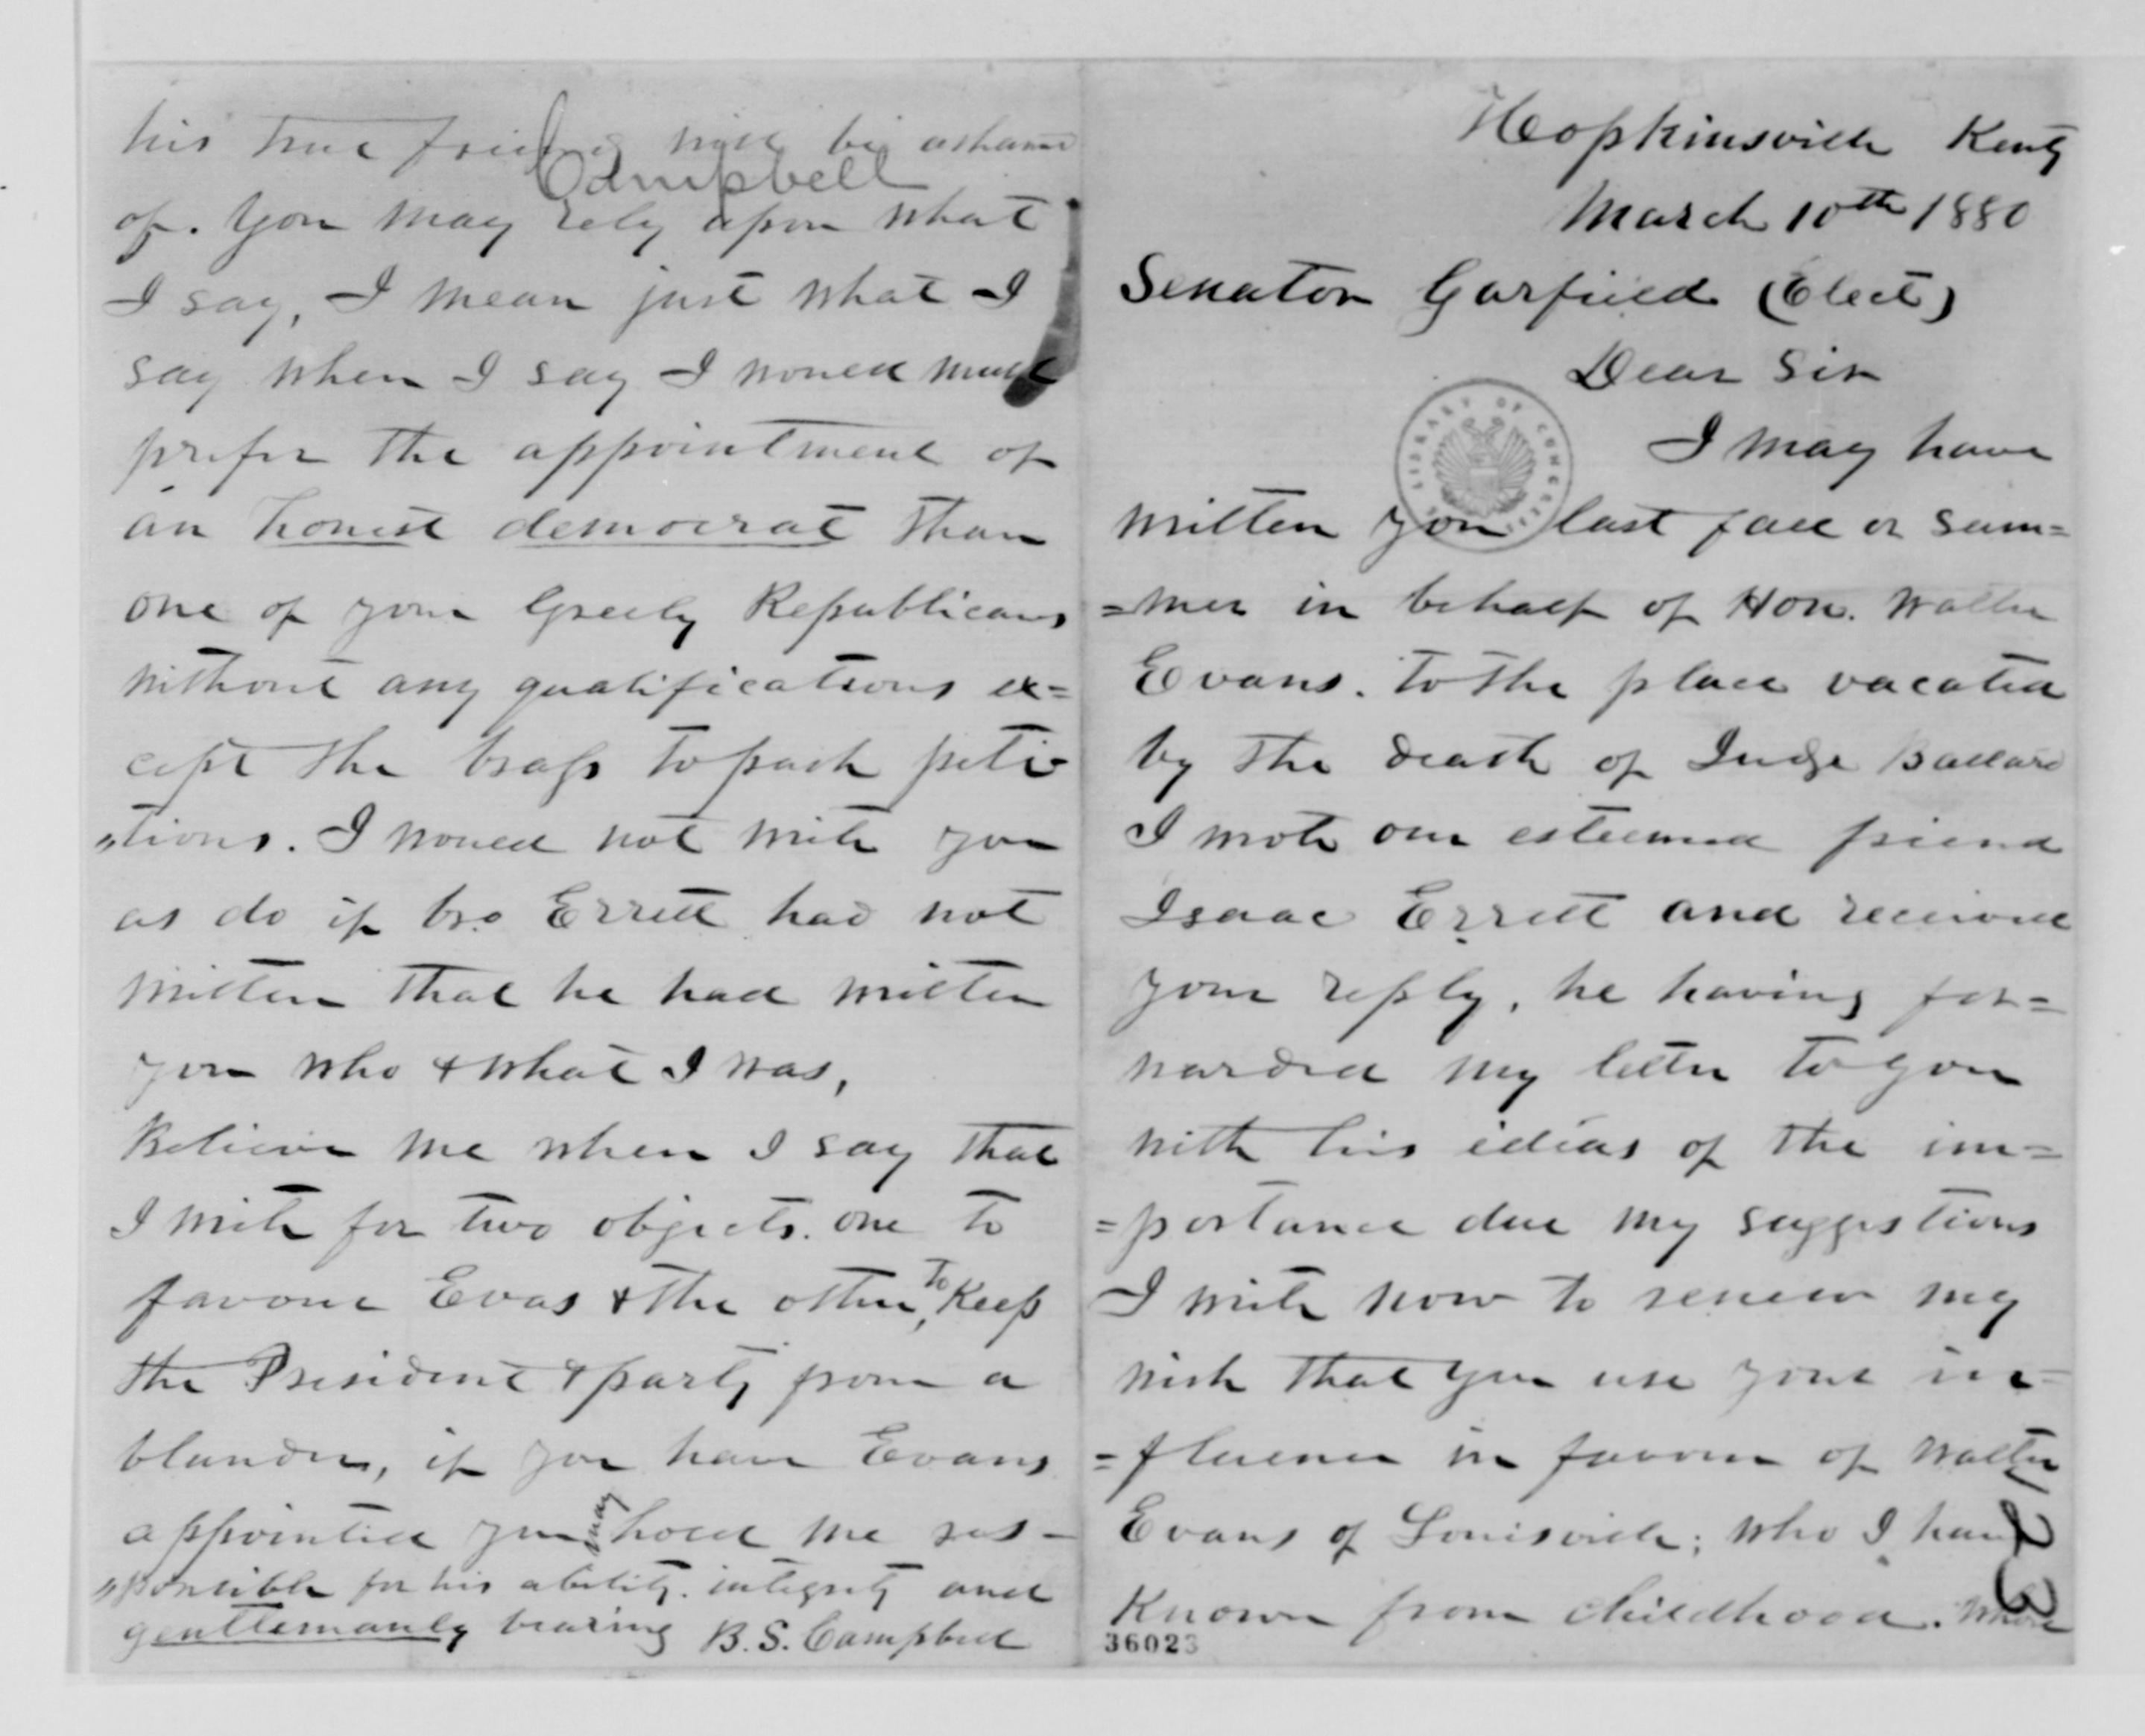 Hopkinsville Kenty
March 10th 1880
Senator Garfield (Elect)
Dear Sir
I may have
written you last fall or sum=
=mer in behalf of Hon. Walter
Evans. to the place vacated
by the death of Judge Ballard
I wrote our esteemed friend
Isaac Errett and received
your reply, he having for=
warded my letter to you
with his ideas of the im=
=portance due my suggestions
I write now to renew my
wish that you use your in=
=fluence in favour of Walter
Evans of Louisville; who I have
Known from childhood. whom
123
36023
LIBRARY OF CONGRESS
his true friends will be ashamed
Campbell
of. You may rely upon what
I say, I mean just what I
say when I say I would much
prefer the appointment of
an honest democrat than
one of your Greely Republicans
without any qualifications ex=
cept the brass to pack peti=
"tions. I would not write you
as do if bro Errett had not
written that he had written
you who & what I was,
Believe me when I say that
I write for two objects. one to
favour Evas & the other, to Keep
the President & party from a
blunder, if you have Evans
appointed you may hold me res-
"ponsible for his ability. integrity and
gentlemanly bearing B. S. Campbell